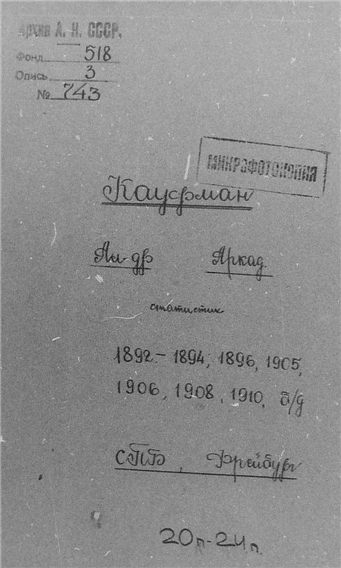 Архив А. Н. СССР.
Фонд 518
Опись 3
№ 743
МИКРОФОТОКОПИЯ
Кауфман
Ал-др Аркад
статистик
1892-1894, 1896, 1905,
1906, 1908, 1910, б/д
СПБ, Фрейбург
20п-24л.